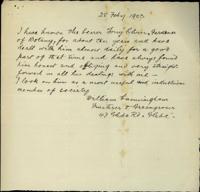 25 Feby 1903
I have known the bearer Tony Olivier, Gardener
of Botany, for about ten years and have
dealt with him almost daily for a good
part of that time and have always found
him honest and obliging and very straight
forward in all his dealings with me —
I look on him as a most useful and industrious
member of society
William Cunningham
Fruiterer & Greengrocer
49 Glebe Rd, Glebe.